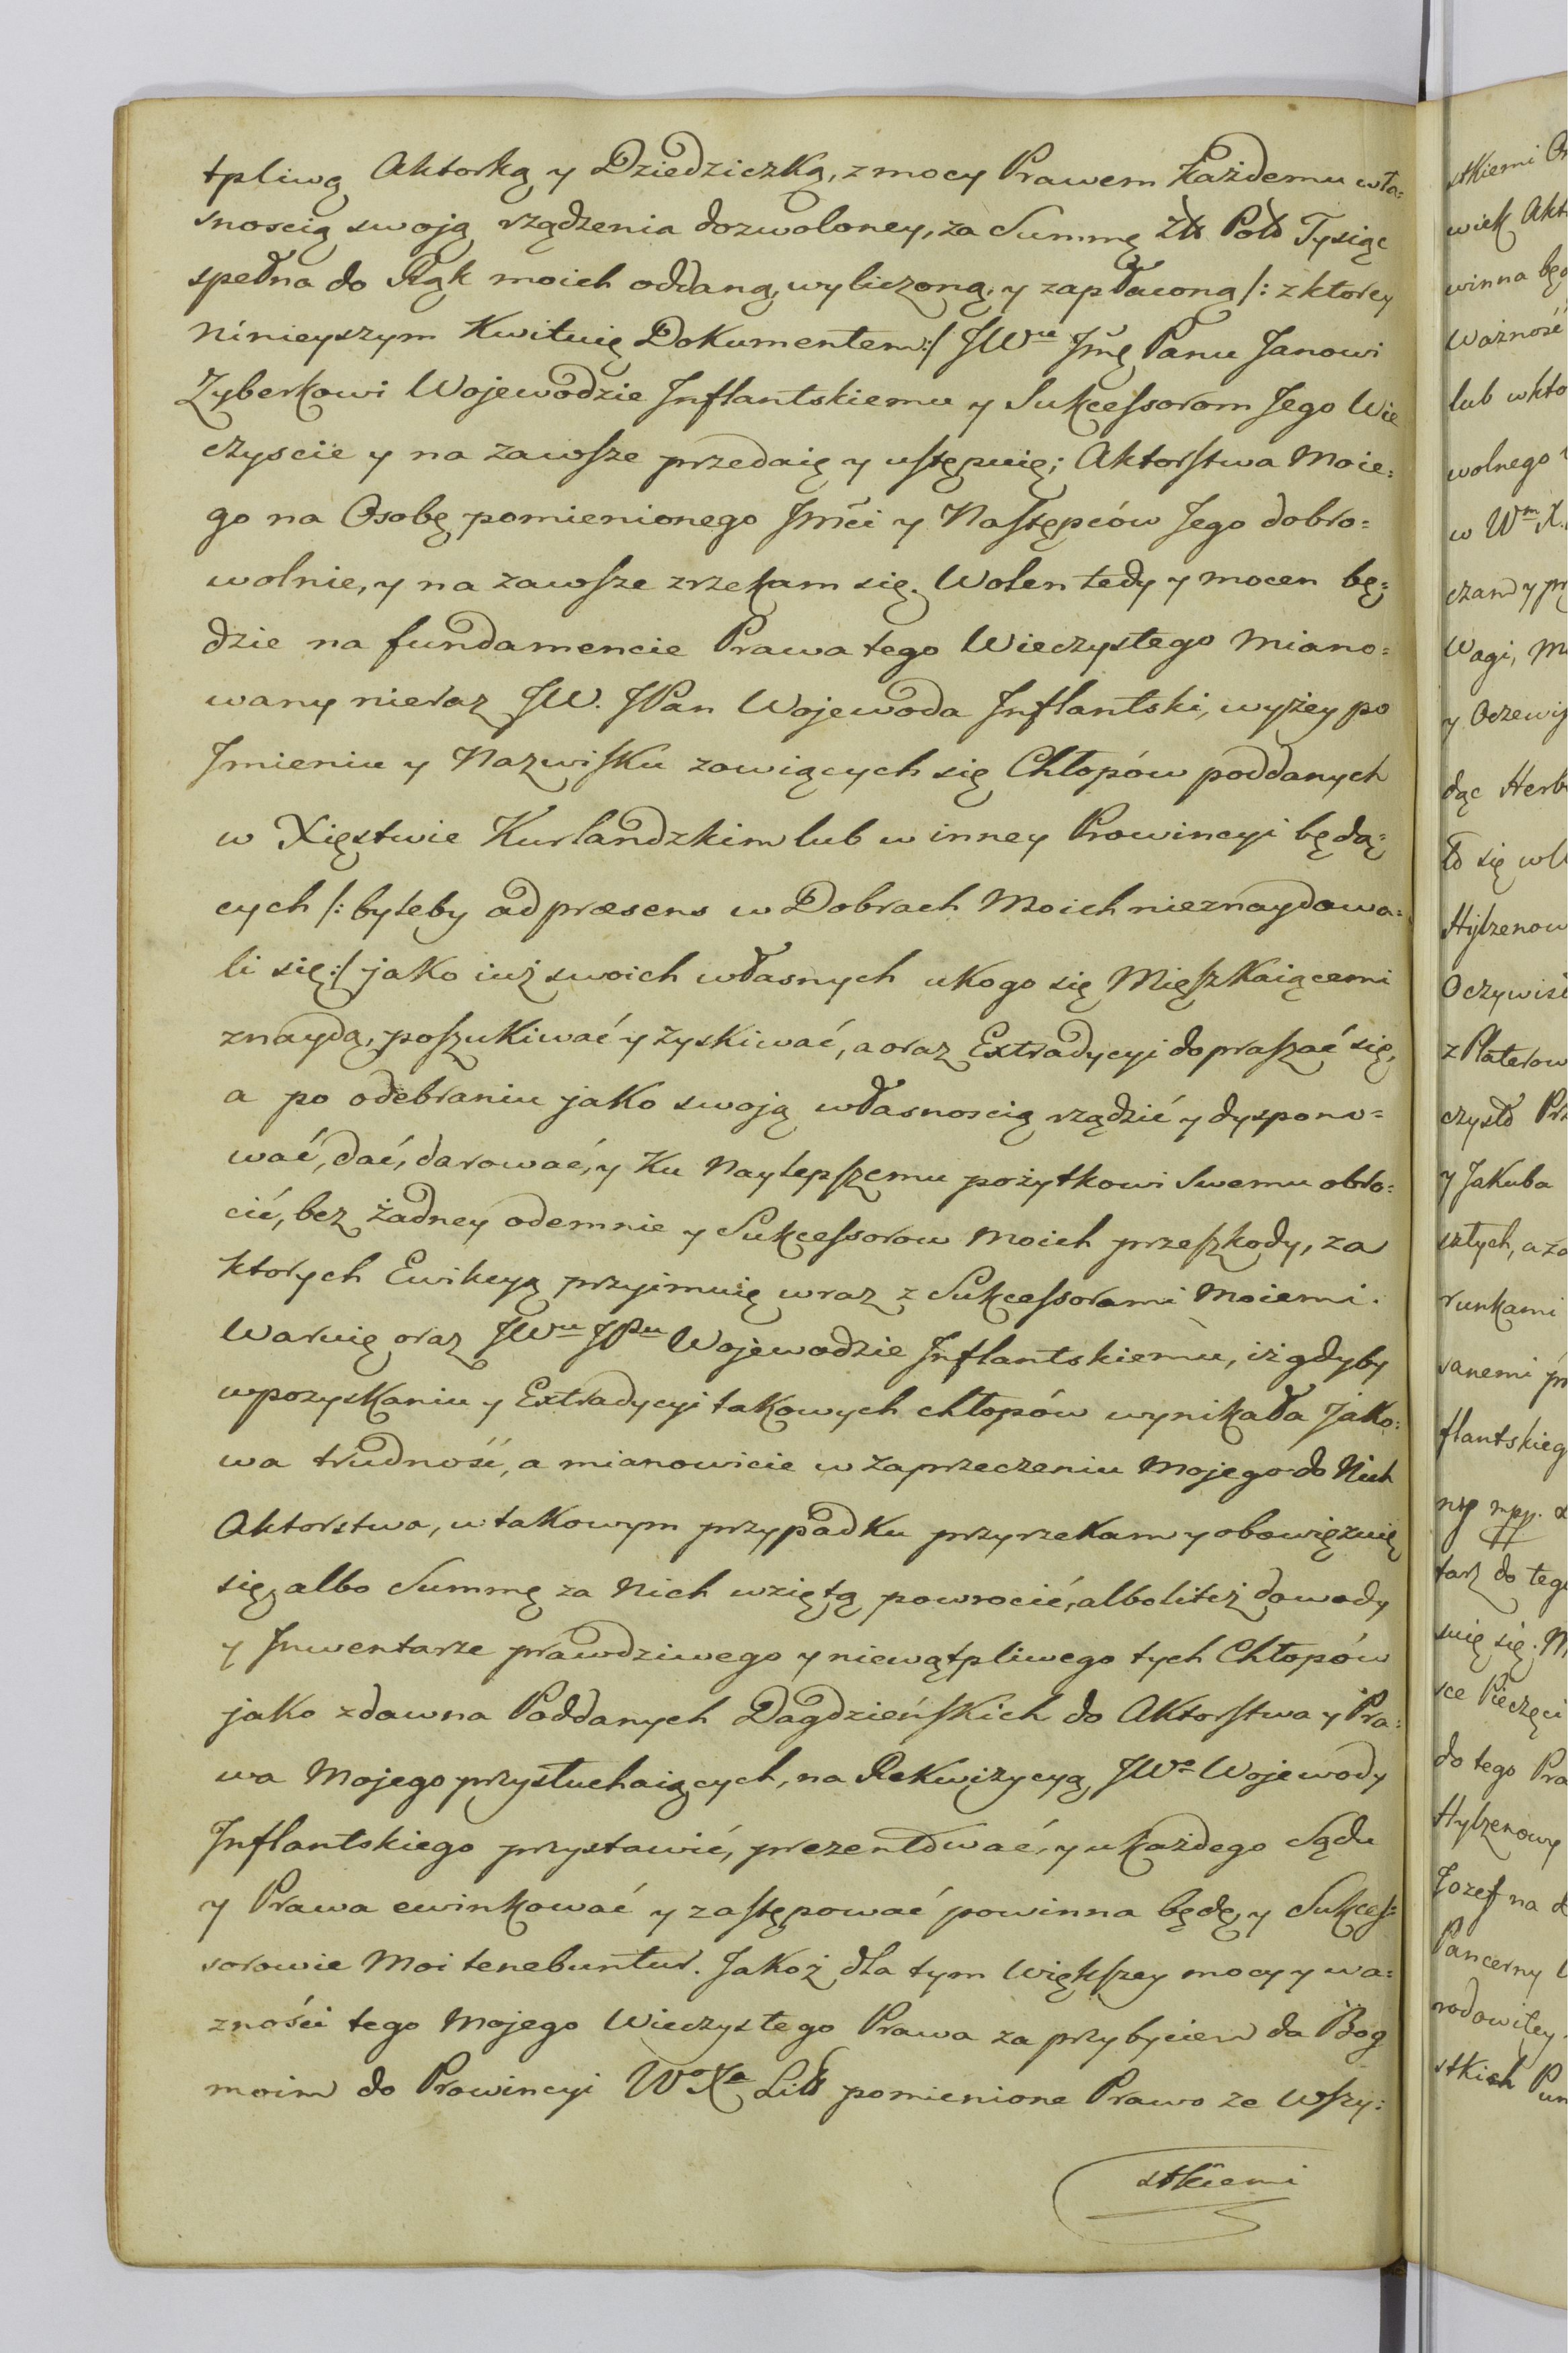 tpliwą Aktorką y Dziedziczką, z mocy Prawem Każdemu wła=
snoscią swoją rządzenia dozwoloney, za Summę Złł Poł Tysiąc
spełna do Rąk moich oddaną, wyliczoną, y zapłaconą /: z ktorey
Ninieyszym Kwituię Dokumentem :/ JWu Jmę Panu Janowi
Zyberkowi Wojewodzie Inflantskiemu y Sukcessorom Jego Wie
czyscie y na zawsze przedaię y ustępuię; Aktorstwa Moie=
go na Osobę pomienionego Jmci y Następców Jego dobro=
wolnie, y na zawsze zrzekam się. Wolen tedy y mocen bę=
dzie na fundamencie Prawa tego Wieczystego Miano=
wany nieraz JW. JPan Wojewoda Inflantski, wyżey po
Jmieniu y Nazwisku zowiących się Chłopów poddanych
w Xięstwie Kurlandzkim lub w inney Prowincyi będą=
cych /: byleby ad præsens w Dobrach Moich nieznaydowa=
li się :/ jako iuż swoich własnych u Kogo się Mięszkaiącemi
znaydą, poszukiwać y zyskiwać, a oraz Extradycyi dopraszać się,
a po odebraniu jako swoją własnoscią rządzić y dyspono=
wać, dać, darować, y Ku Naylepszemu pożytkowi Swemu obro=
cić, bez żadney odemnie y Sukcessorow Moich przeszkody, za
ktorych Ewikcyą przyimuię wraz z Sukcessorami Moiemi.
Waruię oraz JWu JPu Wojewodzie Inflantskiemu, iż gdyby
w pozyskaniu y Extradycyi takowych chłopów wynikała Jako=
wa trudność, a mianowicie w zaprzeczeniu Mojego do Nich
Aktorstwa, w takowym przypadku przyrzekam y obowięzuię
się, albo Summę za Nich wziętą powrocić, albo li też dowody
y Jnwentarze prawdziwego y niewątpliwego tych Chłopów
jako zdawna Poddanych Dagdzieńskich do Aktorstwa y Pra=
wa Mojego przysłuchaiących, na Rekwizycyą JWo Wojewody
Inflantskiego przystawić, prezentować, y u każdego Sądu
y Prawa ewinkować y zastępować powinna będę, y Sukces=
sorowie Moi tenebuntur. Jakoż dla tym większey mocy y wa=
zności tego Mojego Wieczystego Prawa za przybyciem da Bog
moim do Prowincyi Wo Xa Litt pomienione Prawo ze wszy=
stkiemi
stkiemi
wiek Akt
winna bę
Ważność
lub w kto
wolnego
w Wm X.
czam y pr
Wagi, M
y Oczewis
dąc Herb
ło się w
Hylzenow
Oczywis
z Platerow
czysto Prz
y Jakuba
sztych, a za
runkami
sanemi pr
flantskieg
mpp.
tarz do teg
suię się. M
sce Pieczęci
do tego Pra
Hylzenowy
Jozef na
Pancerny
rodowitey
stkich Pun